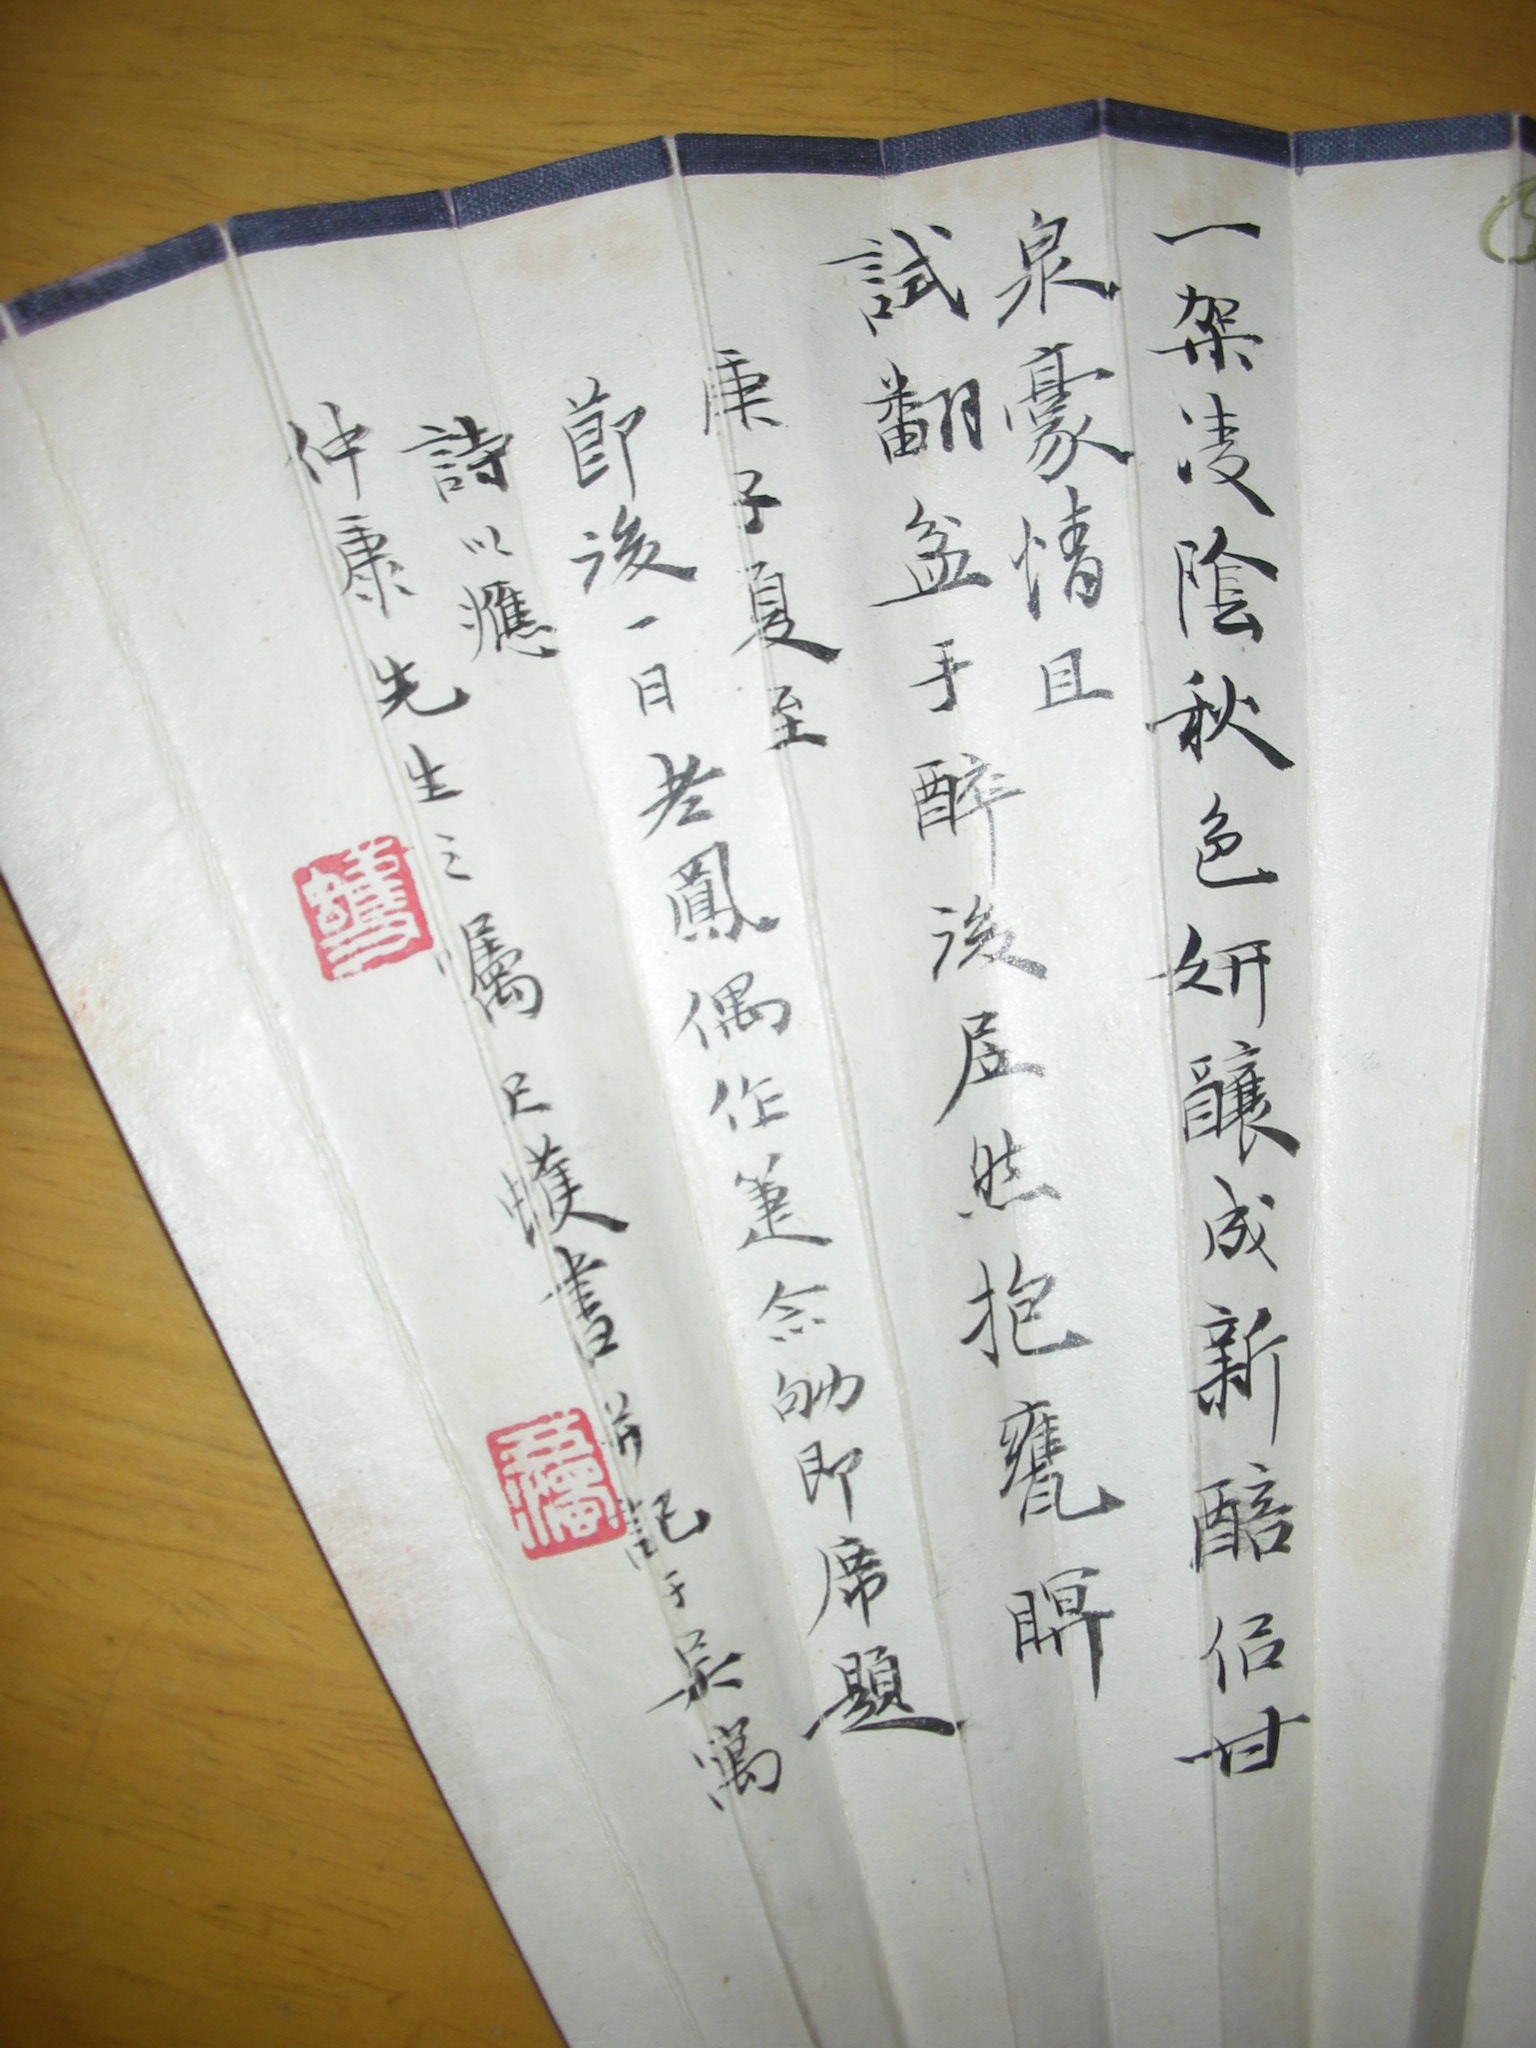 一架凌陰秋色妍釀成新醅侣甘
泉豪情且
試翻盆手醉後居然抱甕瞑
庚子夏至
節後一日老鳳偶作箑念劬即席題
詩以應
仲康先生之屬尺蠖書并記于吳寓